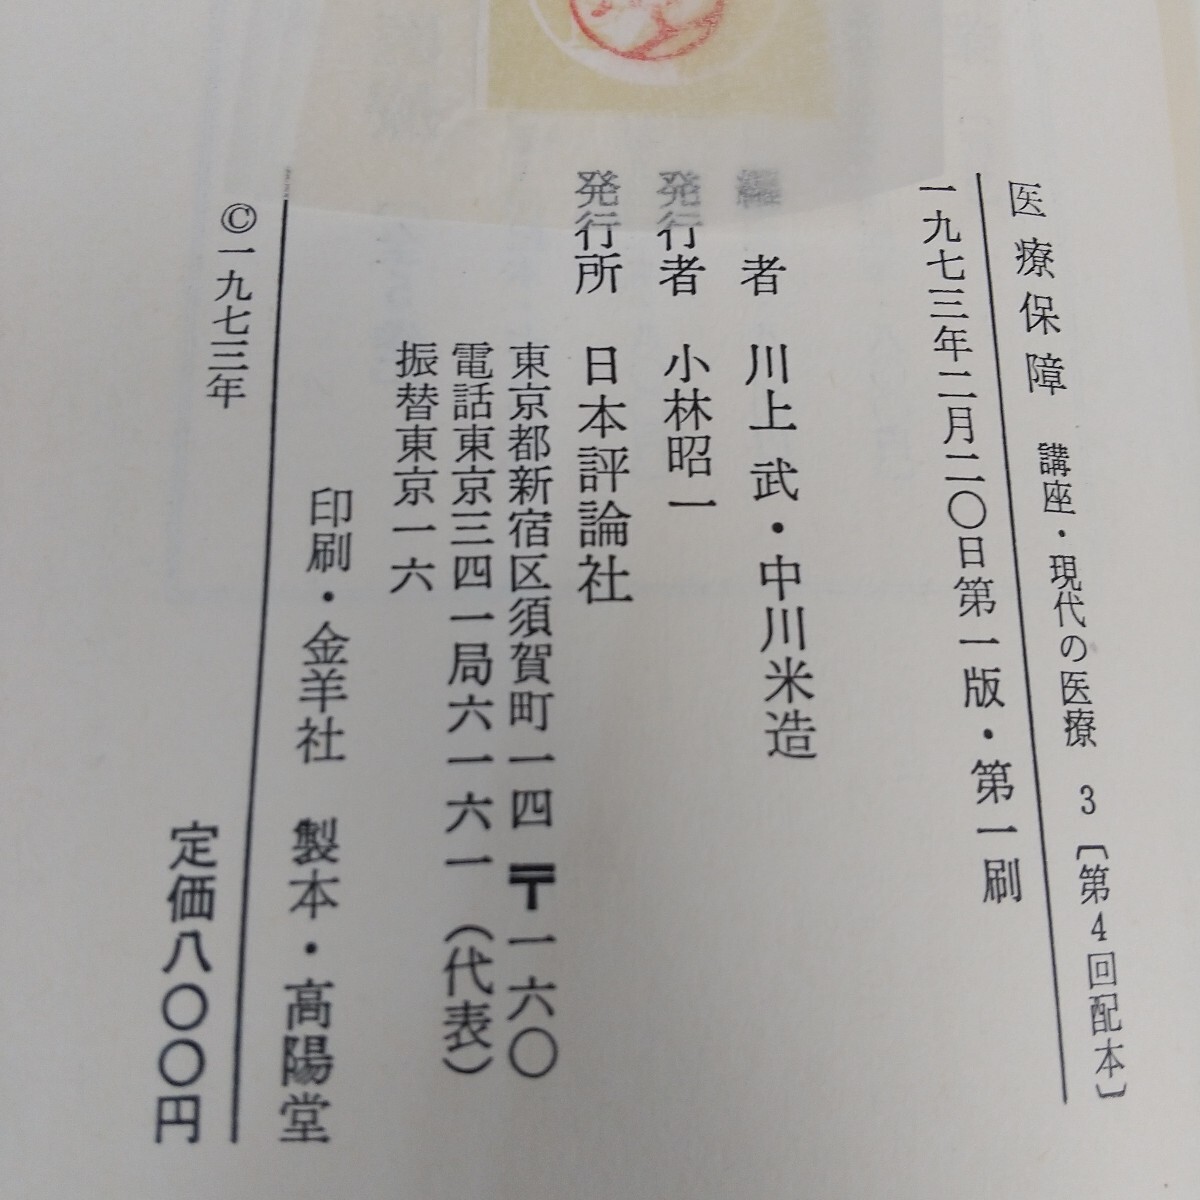 医療保障 講座・現代の医療 3 〔第4回配本〕
一九七三年二月二〇日第一版・第一刷
編者 川上 武・中川米造
発行者 小林昭一
発行所 日本評論社
東京都新宿区須賀町一四 〒一六〇
電話東京三四一局六一六一（代表）
振替東京一六
印刷・金羊社 製本・高陽堂
©一九七三年
定価八〇〇円